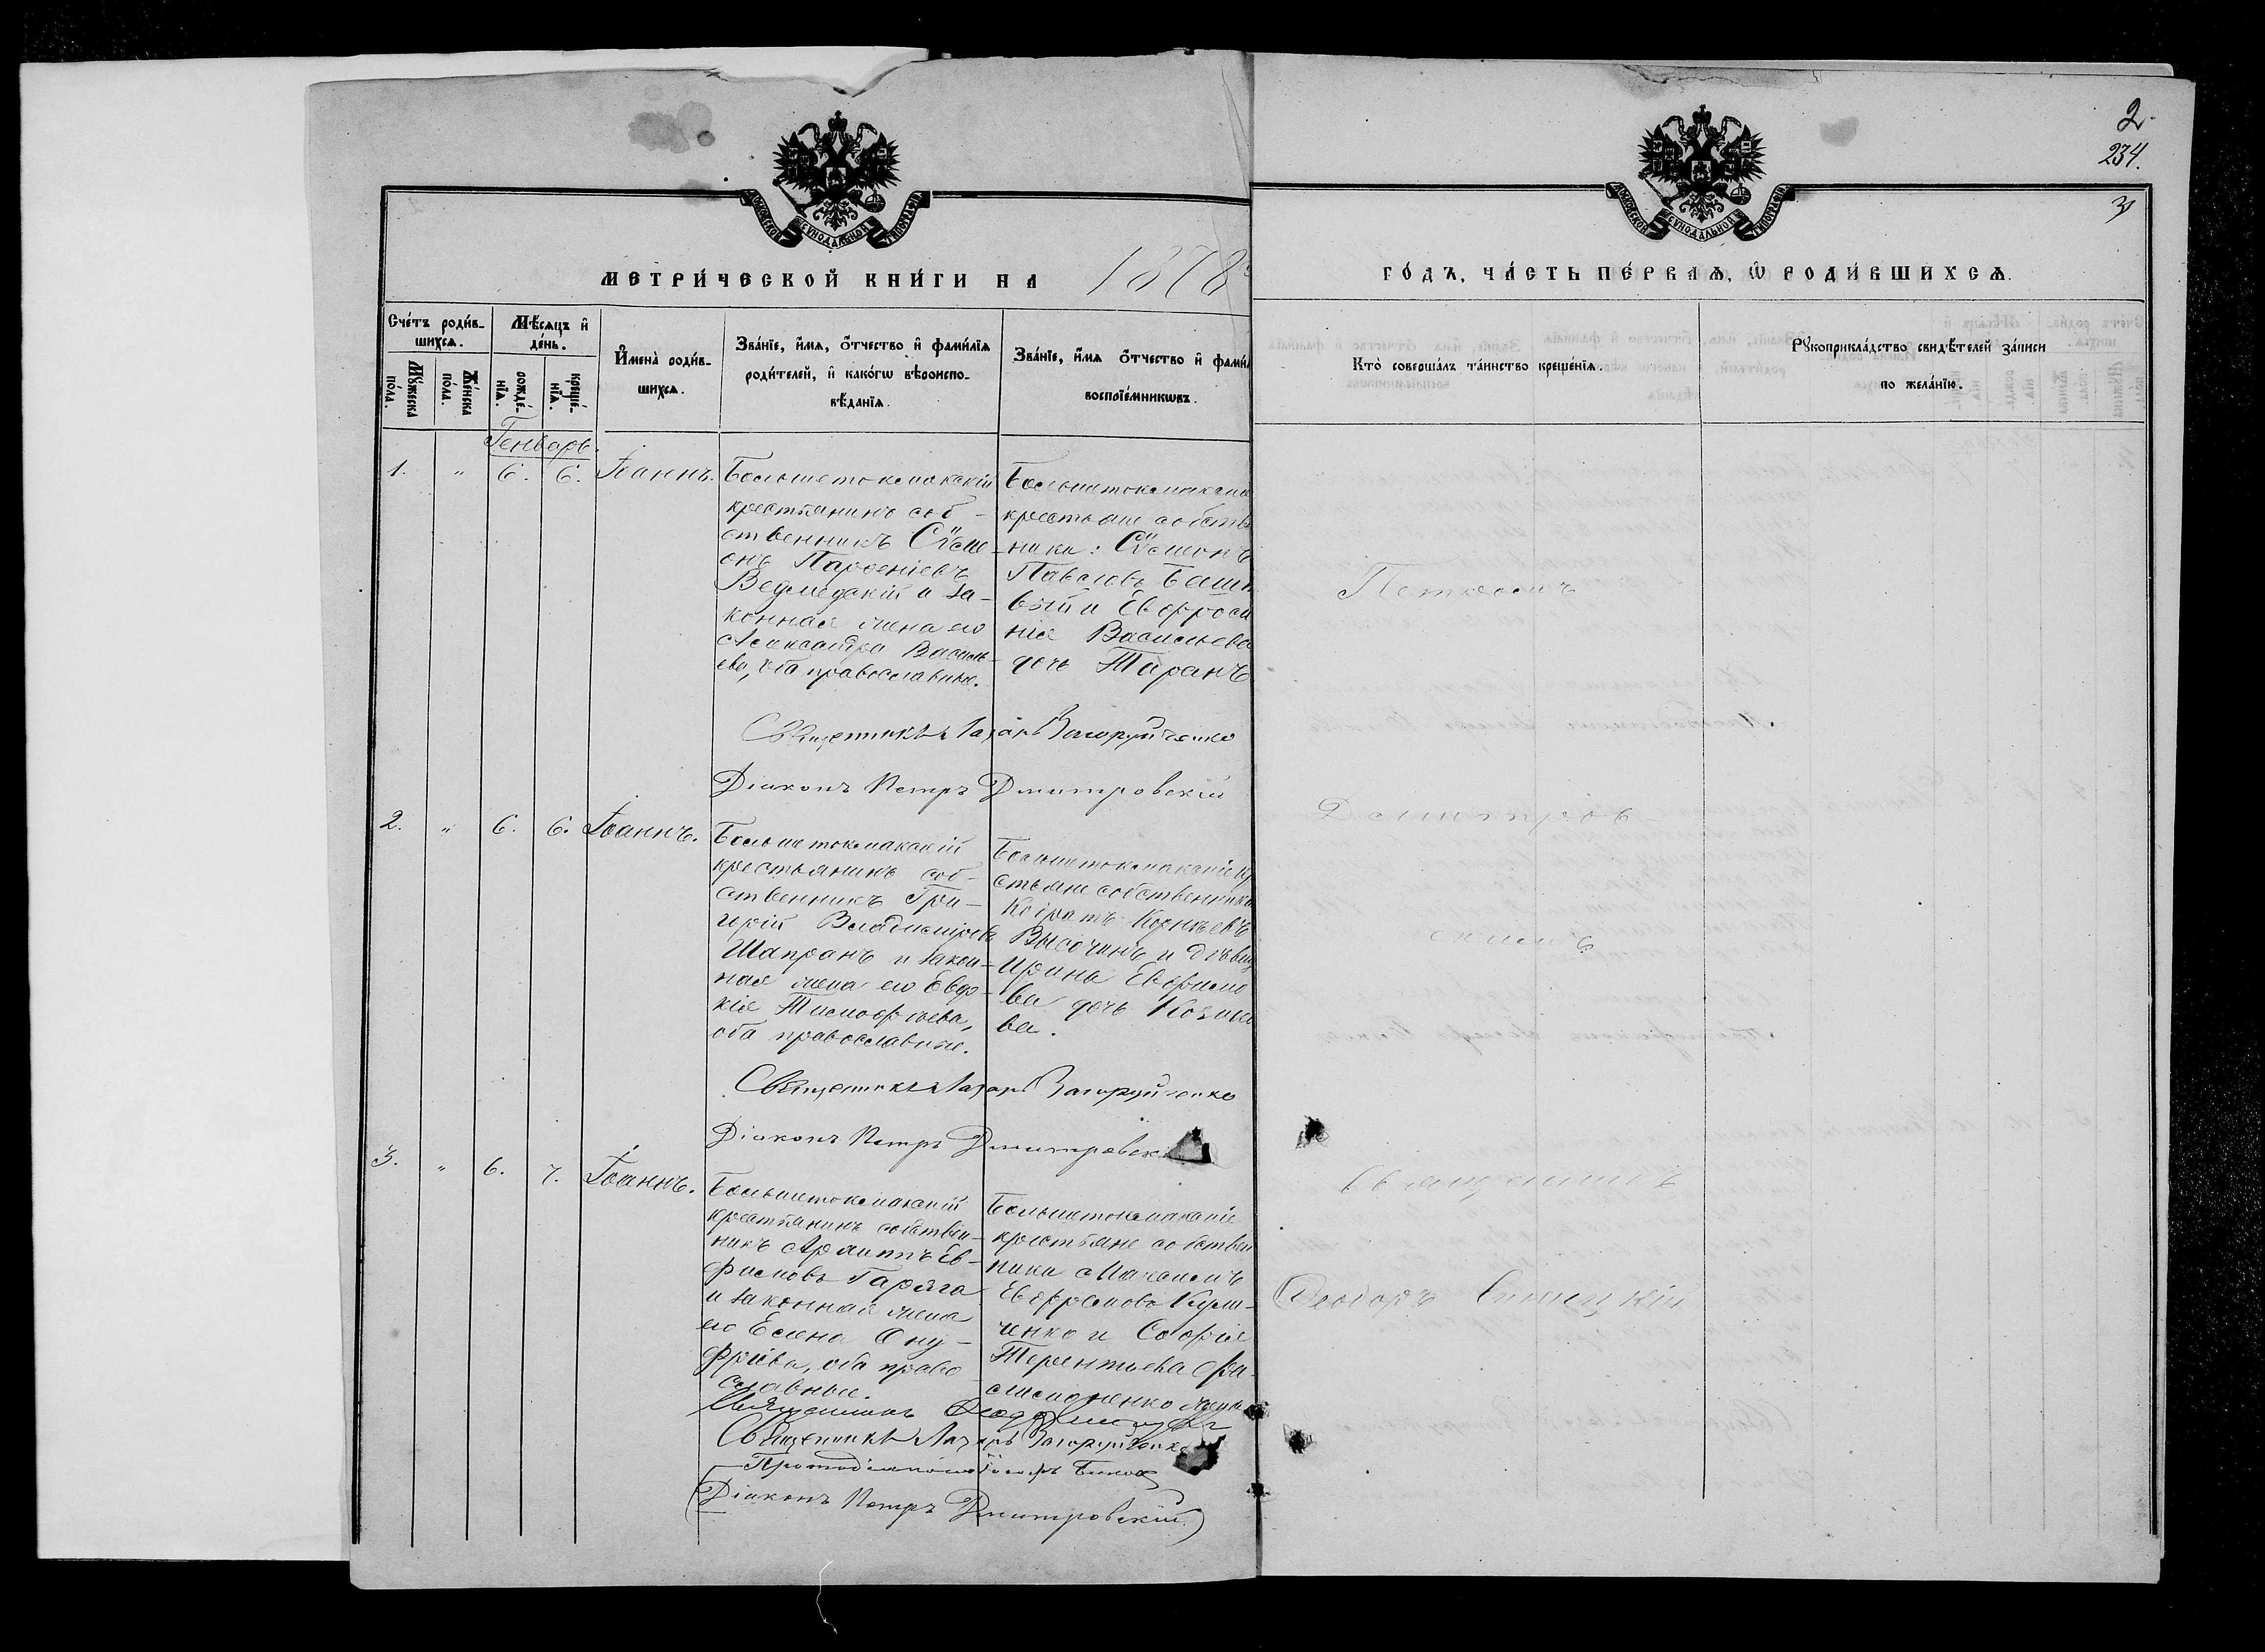 2.
234.
3
МОСКОВСКОЙ СУНОДАЛЬНОЙ ТИПОГРАФІИ
МОСКОВСКОЙ СУНОДАЛЬНОЙ ТИПОГРАФІИ
МЕТРИ́ЧЕСКОЙ КНИ́ГИ НА 1878
ГО́ДЪ, ЧА́СТЬ ПЕ́РВАѦ, Ѡ РОДИ́ВШИХСѦ.
Сче́тъ роди́в-
шихсѧ.
Мꙋ́жеска
по́ла.
Же́нска
по́ла.
Мѣ́сѧцъ и
де́нь.
рожде́-
нїѧ.
креще́-
нїѧ.
Имена̀ роди́в-
шихсѧ.
Зва́нїе, и́мѧ, о́тчество и фами́лїѧ
роди́телей, и како́гѡ вѣроиспо-
вѣ́данїѧ.
Зва́нїе, и́мѧ о́тчество и фами́л
воспрїе́мникѡвъ.
Кто̀ соверша́лъ та́инство креще́нїѧ.
Рꙋкоприкла́дство свидѣ́телей за́писи
по жела́нїю.
Генварь.
1. " 6. 6. Іоаннъ.
Большетокмакскій
крестьянинъ соб-
ственникъ Сѵме-
онъ Парѳеніевъ
Ведмедскій и за-
конная жена его
Александра Василь-
ева, оба православные.
Большетокмакскіе
крестьяне собств
ники: Сѵмеонъ
Павловъ
вый и Евфроси
нія Васильева
дочь Таранъ
Священникъ Лазарь Загоруйченко
Діаконъ Петръ Дмитровскій
2. " 6. 6. Іоаннъ.
Большетокмакскій
крестьянинъ соб-
ственникъ Гри-
горій Владиміровъ
Шапранъ и закон-
ная жена его Евдо-
кія Тимоѳѣева,
оба православные.
Большетокмакскіе кр
стьяне собственники
Кодратъ Корнѣевъ
Высочинъ и дѣвиц
Ирина Евфимо
ва дочь
ва.
Священникъ Лазарь Загоруйченко
Діаконъ Петръ Дмитровск
3. " 6. 7. Іоаннъ.
Большетокмакскій
крестьянинъ собствен-
никъ Ев-
фимовъ
и законная жена
его Елена Ону-
фріева, оба право
славные.
Большетокмакскіе
крестьяне собствен
ники Максимъ
Евфремовъ
ченко и Софія
Терентьева
жена
Священникъ
Священникъ Лазарь Загоруйченко
Протодіаконъ
(Діаконъ Петръ Дмитровскій.)
Священникъ
Ѳеодоръ